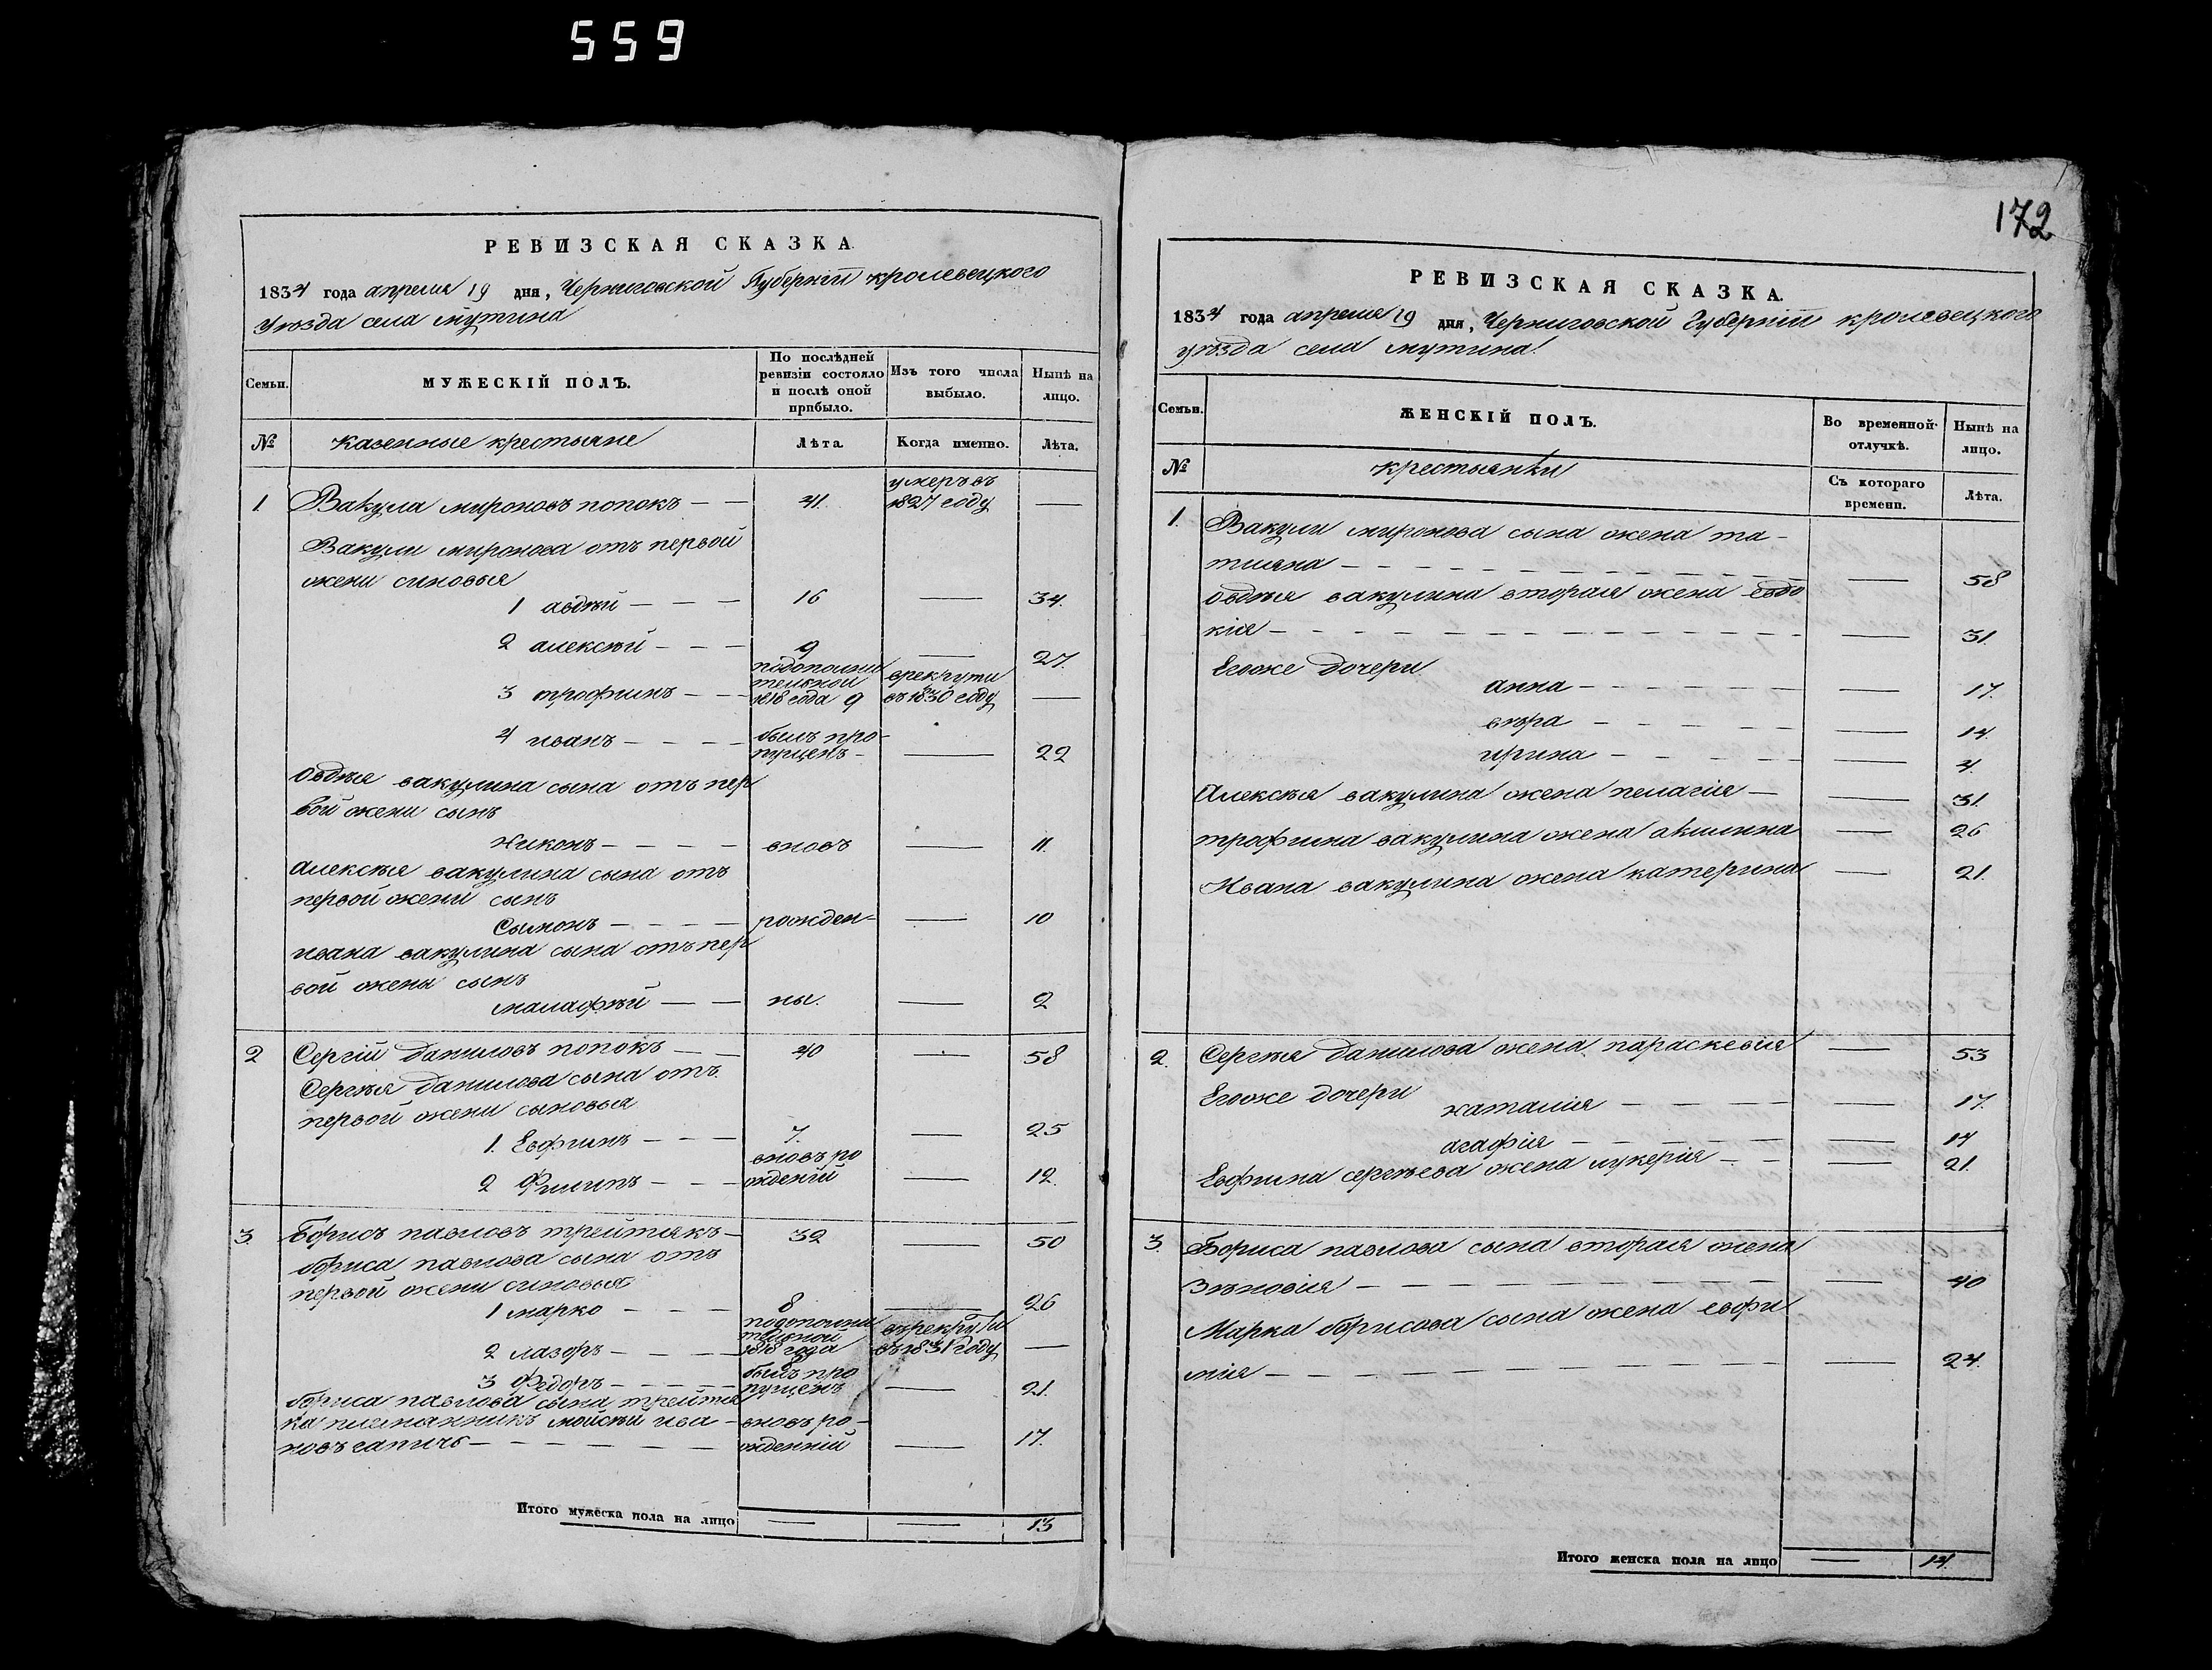 559
РЕВИЗСКАЯ СКАЗКА
1834 года апреля 19 дня, Черниговской Губерніи кролевецкого
уѣзда села мутина
Семьи. МУЖЕСКІЙ ПОЛЪ. По послѣдней ревизіи состояло и послѣ оной прибыло. Изъ того числа выбыло. Нынѣ на лицо.
№ казенные крестьяне Лѣта. Когда именно. Лѣта.
1. Вакула мироновъ попокъ — — 41. умеръ въ 1827 году —
Вакули миронова отъ первой
жени синовья
1 авдѣй — — — 16 — 34.
2 алексѣй — — — 9 — 27.
3 трофимъ — — подополнительной 1818 года 9 врекрути въ 1830 году —
4 иванъ — — — — былъ пропущенъ — — 22
Овдѣя вакулина сына отъ пер
вой жени сынъ
Никонъ — — — — вновъ — 11.
Алексѣя вакулина сына отъ
первой жени сынъ
Сымонъ — — — — рожден — 10
ивана вакулина сына отъ пер
вой жены сынъ
малафѣй — — ны. — 2
2 Сергій даниловъ попокъ — — 40 — 58
Сергѣя данилова сына отъ
первой жени сыновья
1. Евфимъ — — — 7. — 25
2 Филипъ — — — вновъ рожденій — 12.
3. Борисъ павловъ трейтякъ — 32 — 50
бориса павлова сына отъ
первой жени синовья
1 марко — — — 8 — 26
2 лазоръ — — — — подополнительной 1818 года 8 въ рекрути въ 1831 году —
3 Федоръ — — — — былъ пропущенъ — 21.
бориса павлова сына трейтя
ка племянникъ мойсѣй ива — вновъ ро-
новъ гапичъ — — — — — — жденній — 17.
Итого мужеска пола на лицо — — 13
172
РЕВИЗСКАЯ СКАЗКА.
1834 года апреля 19 дня, Черниговской Губерніи кролевецкого
уѣзда села мутина.
Семьи. ЖЕНСКІЙ ПОЛЪ. Во временной отлучкѣ. Нынѣ на лицо.
№ крестьянки Съ котораго времени. Лѣта.
1. Вакули миронова сына жена та-
тияна — — — — — — — — — 58
Овдѣя вакулина вторая жена евдо
кія — — — — — — — — — 31.
Егоже дочери
анна — — — — — — 17.
вѣра — — — — — — 14.
ирина — — — — — — 4.
Алексѣя вакулина жена пелагія — — 31.
трофима вакулина жена акилина — 26
Ивана вакулина жена катерина — 21.
2. Сергѣя данилова жена параскевія — 53
Егоже дочери
наталия — — — — — 17.
агафія — — — — — — 14
Евфима сергѣева жена лукерія — — — 21.
3. Бориса павлова сына вторая жена
Зѣновія — — — — — — — — 40
Марка борисова сына жена евфи
мія — — — — — — — — — 24.
Итого женска пола на лицо — 14.